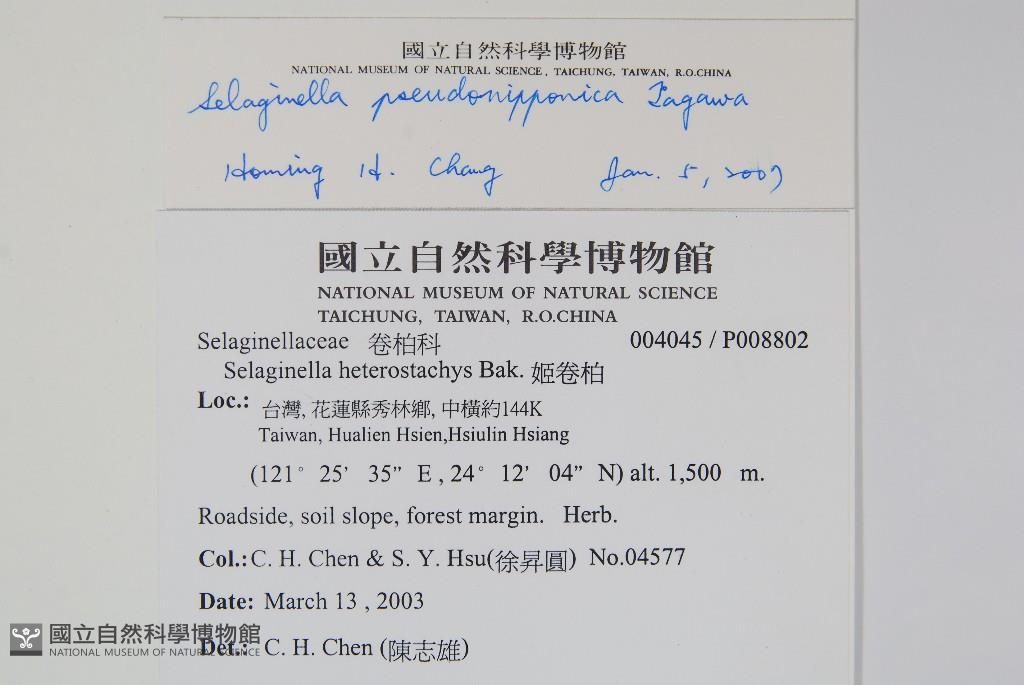 國立自然科學博物館
NATIONAL MUSEUM OF NATURAL SCIENCE, TAICHUNG, TAIWAN, R.O.CHINA
Selaginella pseudonipponica Tagawa
Homing H. Chang Jan. 5, 2007
國立自然科學博物館
NATIONAL MUSEUM OF NATURAL SCIENCE
TAICHUNG, TAIWAN, R.O.CHINA
Selaginellaceae 卷柏科 004045 / P008802
Selaginella heterostachys Bak. 姬卷柏
Loc.: 台灣, 花蓮縣秀林鄉, 中橫約144K
Taiwan, Hualien Hsien,Hsiulin Hsiang
(121° 25' 35" E , 24° 12' 04" N) alt. 1,500 m.
Roadside, soil slope, forest margin. Herb.
Col.: C. H. Chen & S. Y. Hsu(徐昇圓) No.04577
Date: March 13 , 2003
Det.: C. H. Chen (陳志雄)
國立自然科學博物館
NATIONAL MUSEUM OF NATURAL SCIENCE